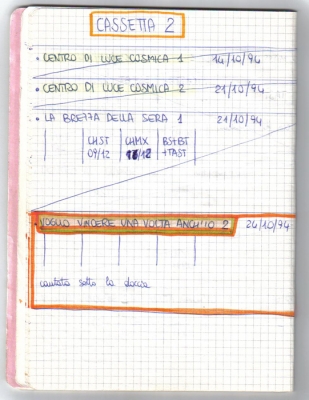 CASSETTA 2
• CENTRO DI LUCE COSMICA 1 14/10/94
• CENTRO DI LUCE COSMICA 2 21/10/94
• LA BREZZA DELLA SERA 1 21/10/94
CHST CHMX BS+BT
09/12 /12 +TAST
• VOGLIO VINCERE UNA VOLTA ANCH'IO 2 26/10/94
cantata sotto la doccia